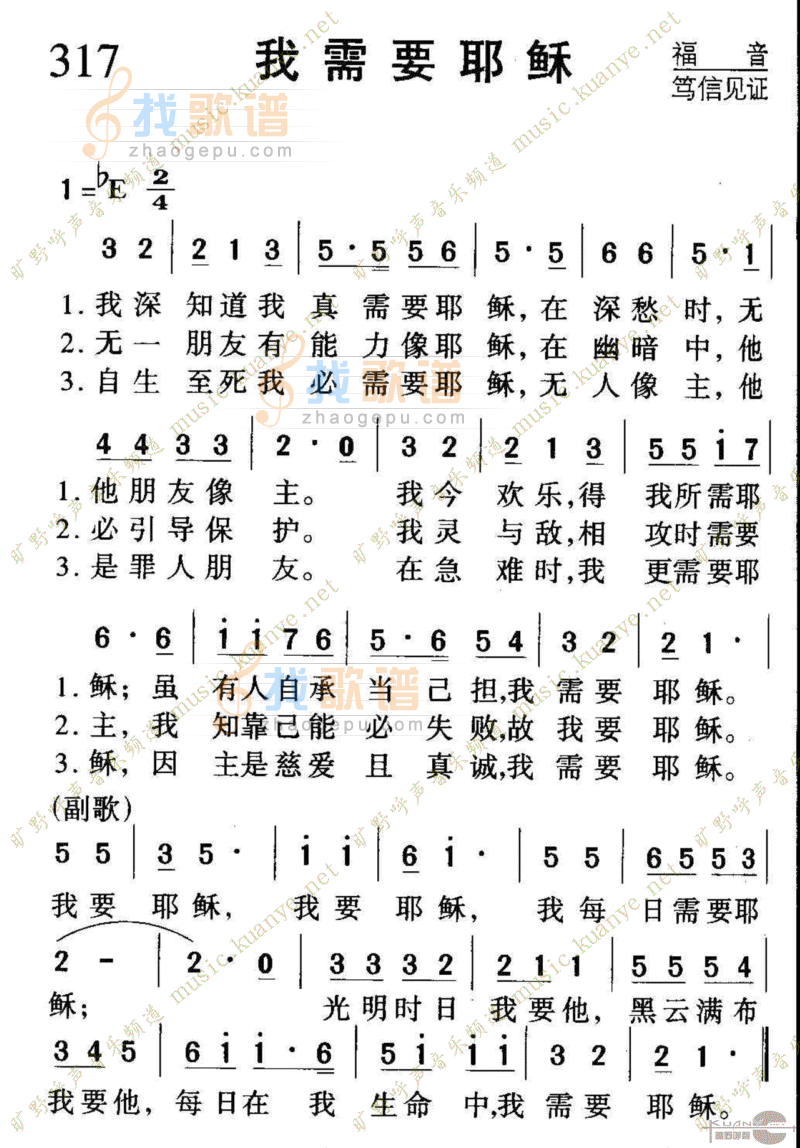 317 我需要耶稣 福音
笃信见证
找歌谱
zhaogepu.com
1=♭E 2/4
3 2 | 2 1 3 | 5· 5 5 6 | 5· 5 | 6 6 | 5· 1 |
1.我深 知道我 真 需要耶 稣,在 深愁 时,无
2.无一 朋友有 能 力像耶 稣,在 幽暗 中,他
3.自生 至死我 必 需要耶 稣,无 人像 主,他
找歌谱
zhaogepu.com
4 4 3 3 | 2· 0 | 3 2 | 2 1 3 | 5 5 i 7 |
1.他朋友像 主。 我今 欢乐,得 我所需耶
2.必引导保 护。 我灵 与敌,相 攻时需要
3.是罪人朋 友。 在急 难时,我 更需要耶
6· 6 | i i 7 6 | 5· 6 5 4 | 3 2 | 2 1· |
1.稣;虽 有人自承 当 己担,我 需要 耶稣。
2.主,我 知靠己能 必 失败,故 我要 耶稣。
3.稣,因 主是慈爱 且 真诚,我 需要 耶稣。
找歌谱
zhaogepu.com
(副歌)
5 5 | 3 5· | i i | 6 i· | 5 5 | 6 5 5 3 |
我要 耶稣, 我要 耶稣, 我每 日需要耶
2 - | 2· 0 | 3 3 3 2 | 2 1 1 | 5 5 5 4 |
稣; 光明时日 我要他, 黑云满布
3 4 5 | 6 i i· 6 | 5 i i i | 3 2 | 2 1· ‖
我要他, 每日在 我 生命 中,我 需要 耶稣。
旷野呼声音乐频道 music.kuanye.net
KUANYE
旷野呼声